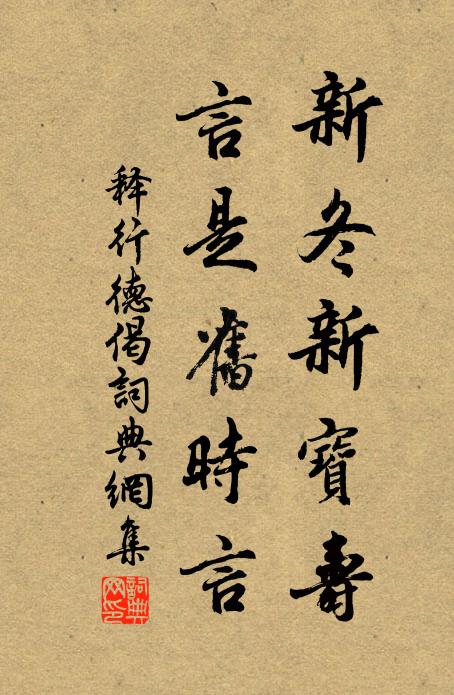 新冬新寶壽
言是舊時言
释行德偈詞典網集
詞典網印